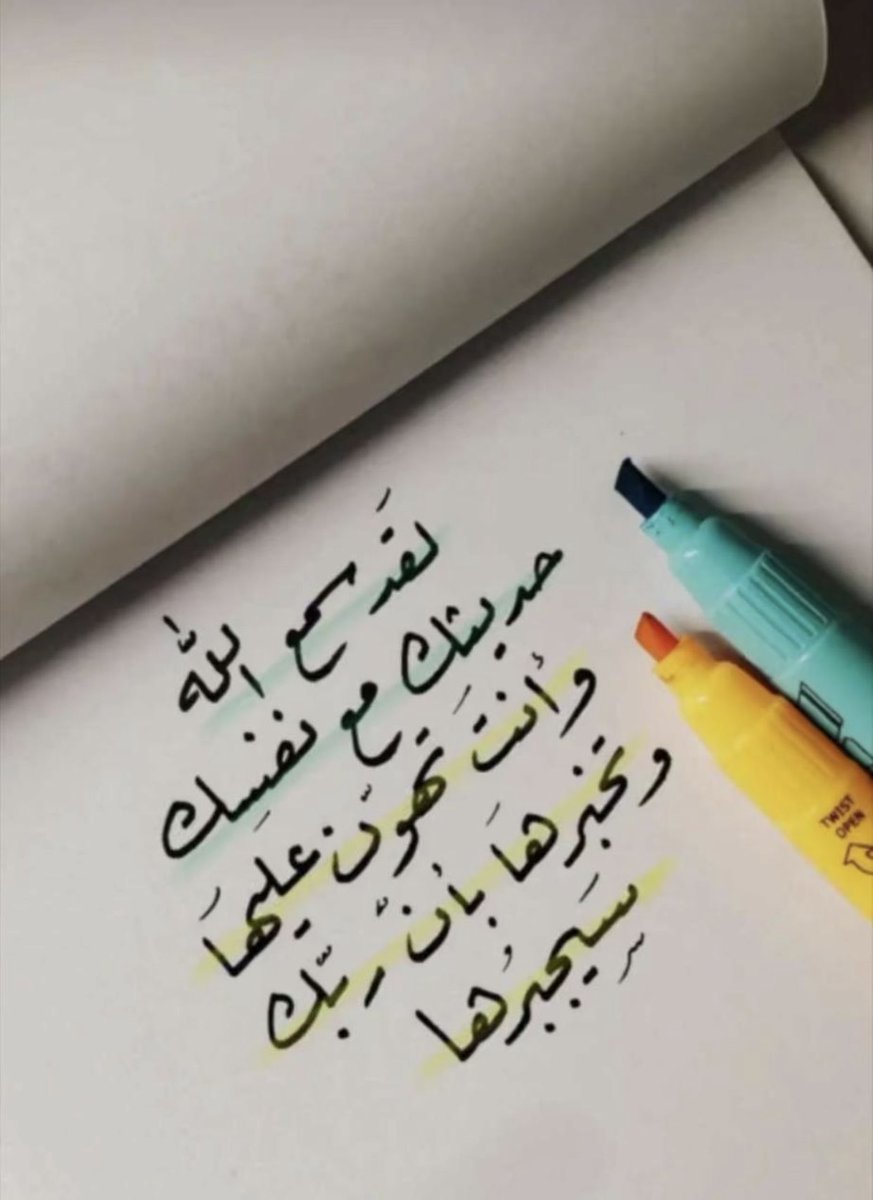 لقَد سمع الله
حديثك مع نفسِك
وأنتَ تهوّن عليهَا
وتخبرهَا بأنّ ربّك
سَيجبرُها
TWIST
OPEN